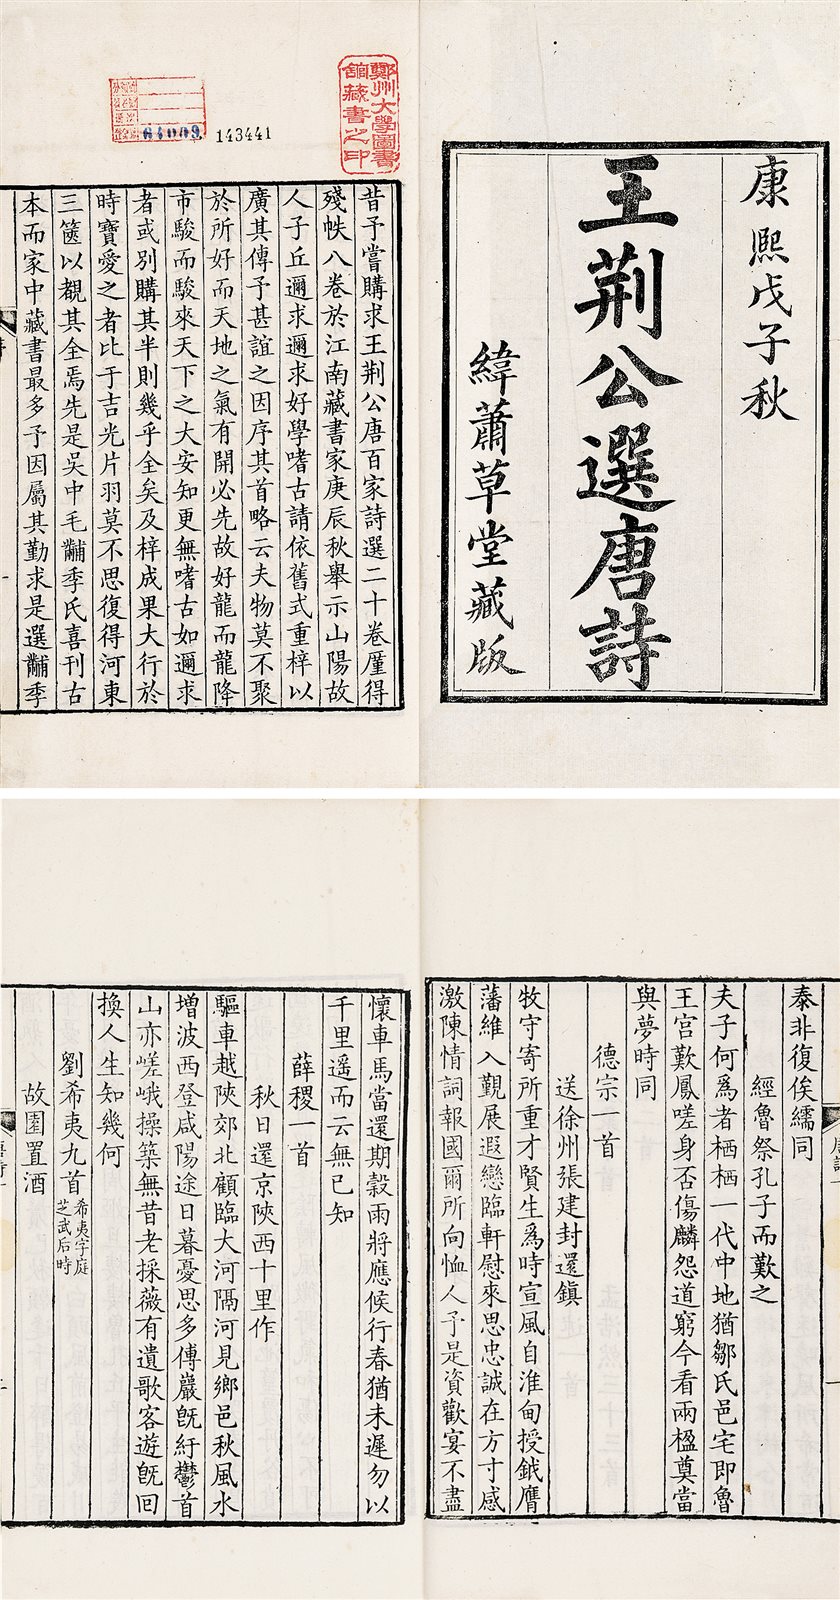 康熙戊子秋
王荆公選唐詩
緯蕭草堂藏版
鄭州大學圖書
館藏書之印
64009
143441
昔予嘗購求王荆公唐百家詩選二十卷厪得
殘帙八卷於江南藏書家庚辰秋舉示山陽故
人子丘邇求邇求好學嗜古請依舊式重梓以
廣其傳予甚誼之因序其首略云夫物莫不聚
於所好而天地之氣有開必先故好龍而龍降
市駿而駿來天下之大安知更無嗜古如邇求
者或別購其半則幾乎全矣及梓成果大行於
時寶愛之者比于吉光片羽莫不思復得河東
三篋以覩其全焉先是吳中毛黼季氏喜刊古
本而家中藏書最多予因屬其勤求是選黼季
泰非復俟繻同
經魯祭孔子而歎之
夫子何爲者栖栖一代中地猶鄒氏邑宅即魯
王宮歎鳳嗟身否傷麟怨道窮今看兩楹奠當
與夢時同
德宗一首
送徐州張建封還鎮
牧守寄所重才賢生爲時宣風自淮甸授鉞膺
藩維入覲展遐戀臨軒慰來思忠誠在方寸感
激陳情詞報國爾所向恤人予是資歡宴不盡
懷車馬當還期穀雨將應候行春猶未遲勿以
千里遥而云無已知
薛稷一首
秋日還京陝西十里作
驅車越陝郊北顧臨大河隔河見鄉邑秋風水
增波西登咸陽途日暮憂思多傅巖旣紆鬱首
山亦嵯峨操築無昔老採薇有遺歌客遊旣回
換人生知幾何
劉希夷九首
希夷字庭
芝武后時
故園置酒